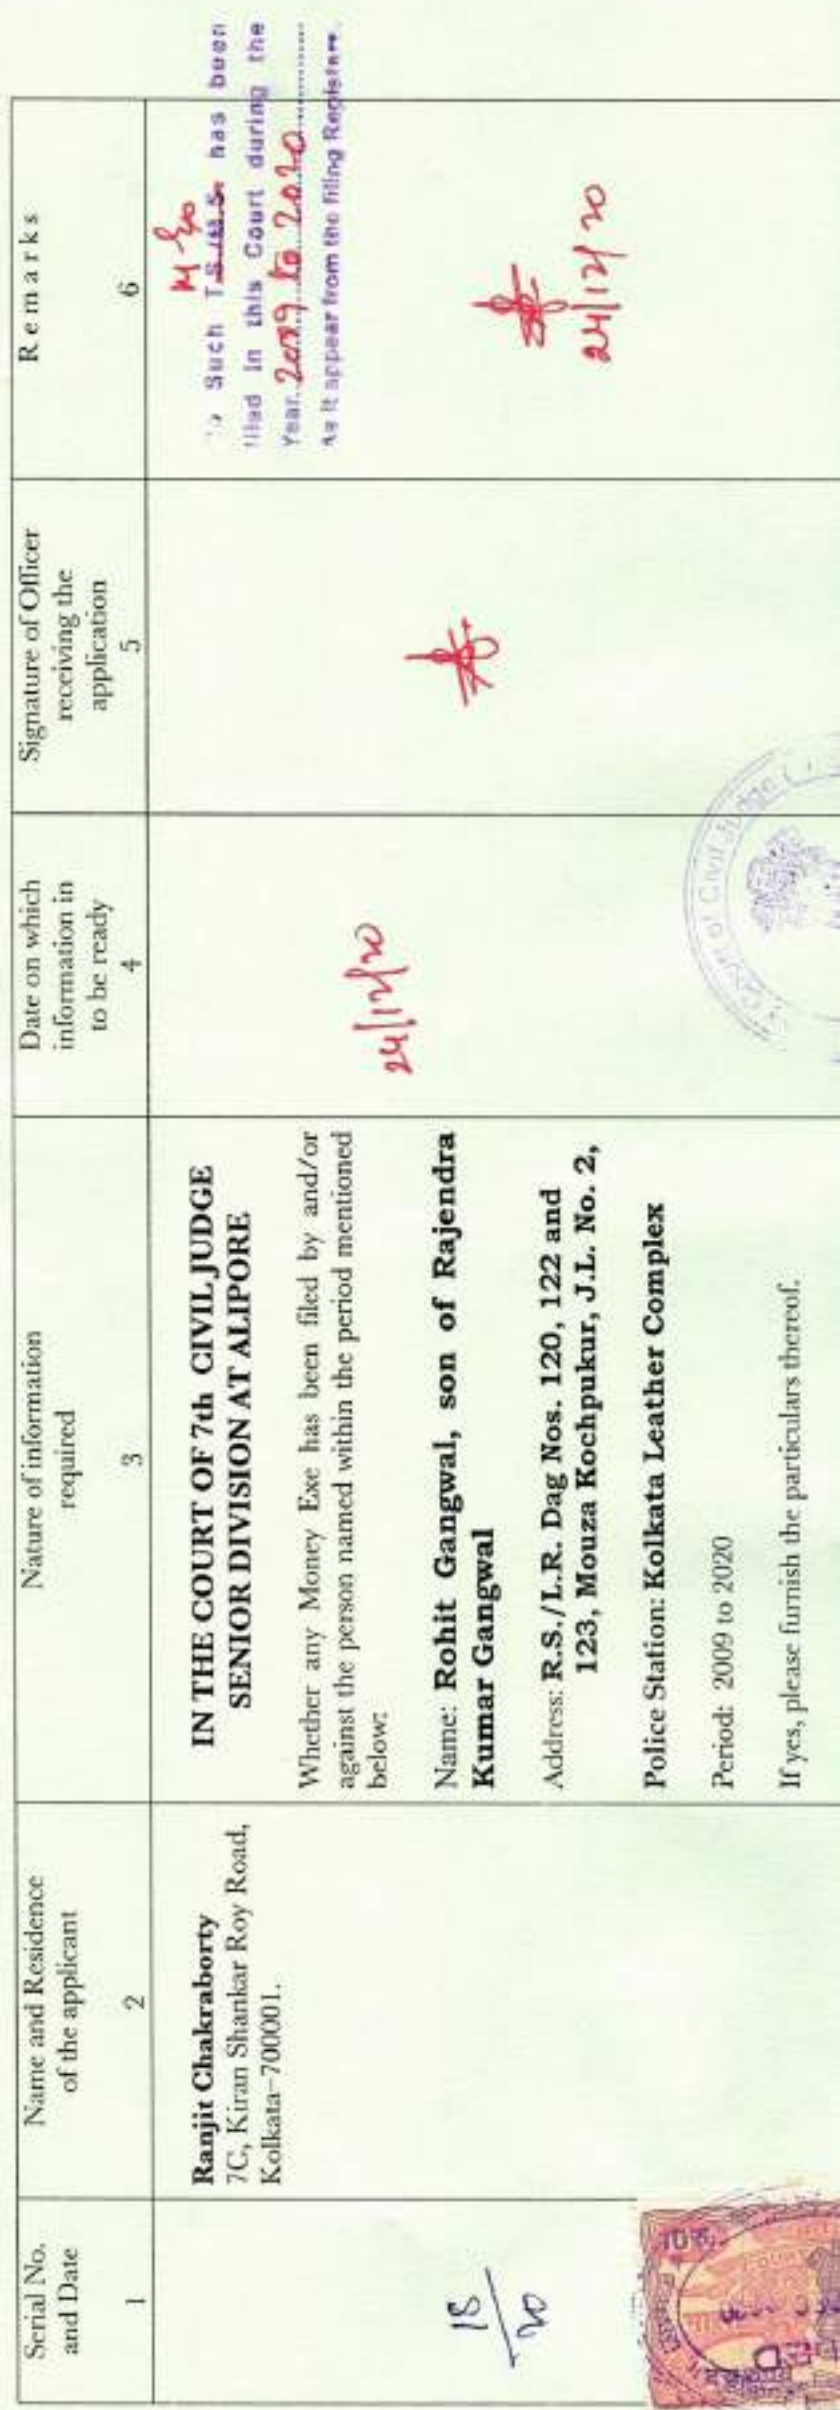 Serial No.
and Date
1
Name and Residence
of the applicant
2
Nature of information
required
3
Date on which
information in
to be ready
4
Signature of Officer
receiving the
application
5
Remarks
6
18
20
Ranjit Chakraborty
7C, Kiran Shankar Roy Road,
Kolkata-700001.
IN THE COURT OF 7th CIVIL JUDGE
SENIOR DIVISION AT ALIPORE
Whether any Money Exe has been filed by and/or
against the person named within the period mentioned
below:
Name: Rohit Gangwal, son of Rajendra
Kumar Gangwal
Address: R.S./L.R. Dag Nos. 120, 122 and
123, Mouza Kochpukur, J.L. No. 2,
Police Station: Kolkata Leather Complex
Period: 2009 to 2020
If yes, please furnish the particulars thereof.
24/12/20
M
Such T.S./M.S. has been
filed in this Court during the
Year. 2009 to 2020
As it appear from the filing Register.
24/12/20
of Civil Judge
10